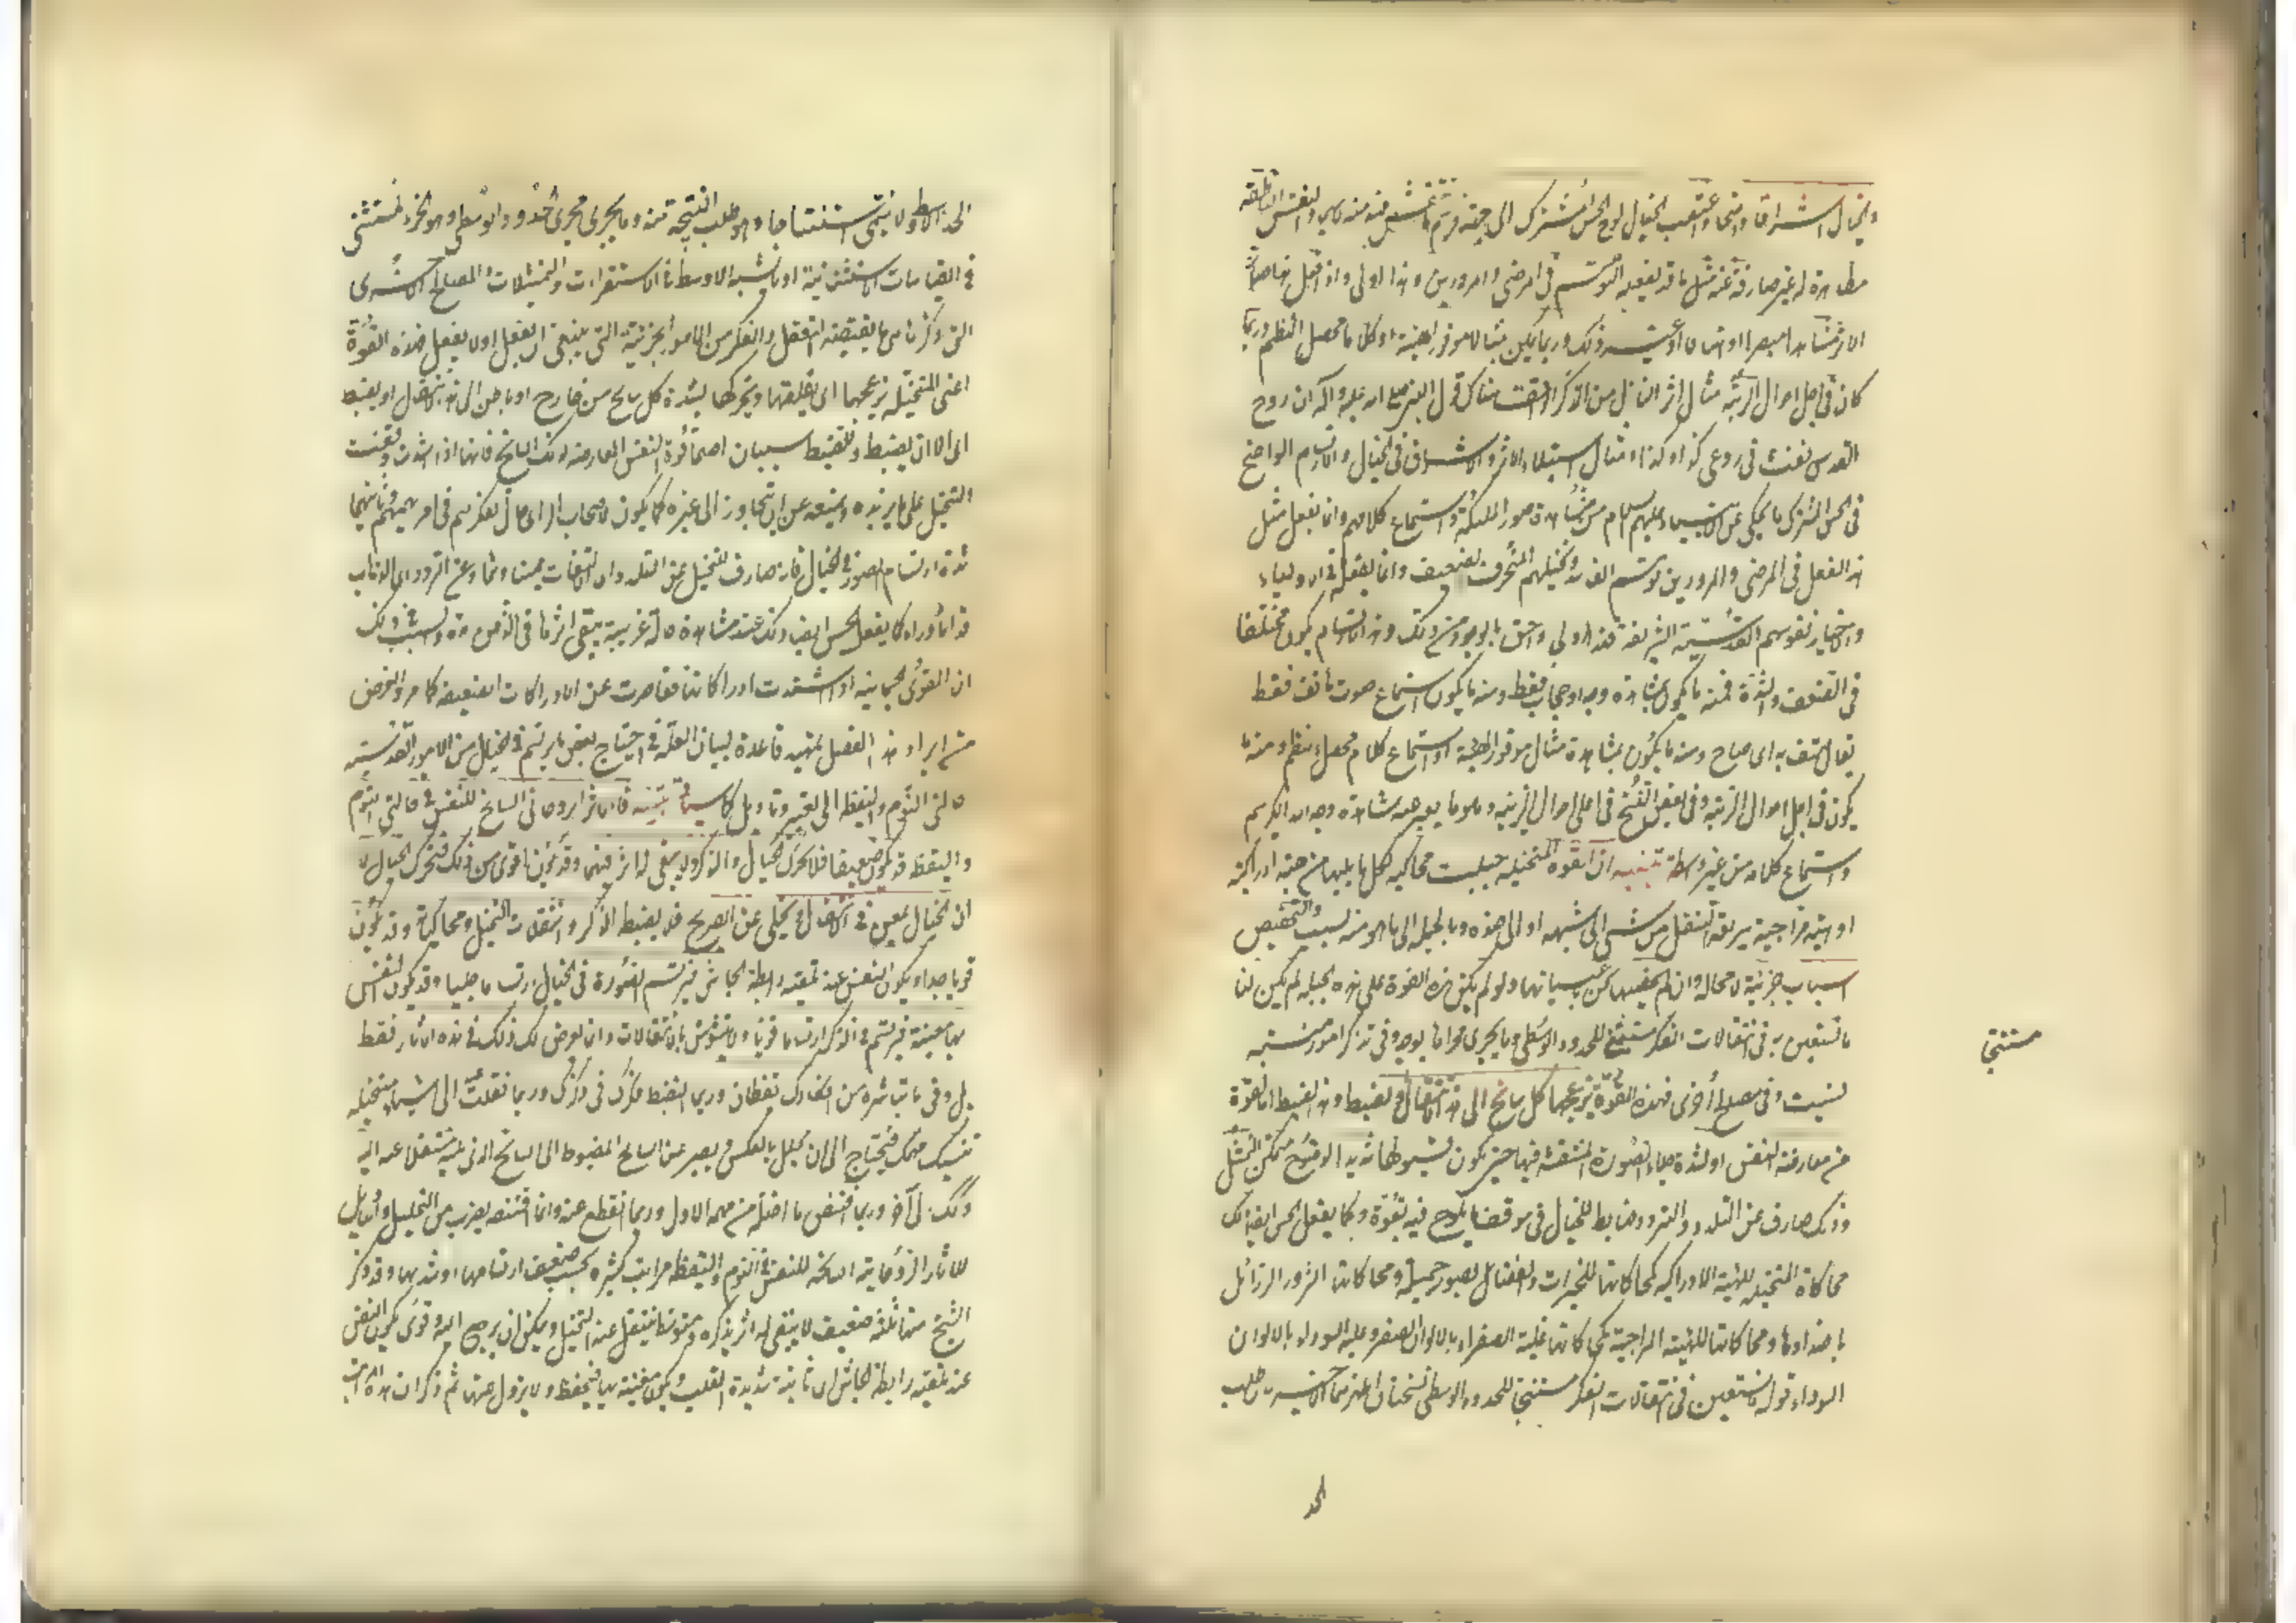 والخيال اشراقا واضحا واغتصب الخيال لوح الحس المشترك الى جهته فرسم ما انتقش فيه منه لا سيما والنفس الناطقة
مظاهرة له غير صارفة عنه مثل ما قد يفعله التوهم في المرضى والممرورين وهذا اولى واذا فعل هذا صار
الاثر مشاهدا مبصرا او هتافا او غير ذلك وربما تمكن مثالا موفور الهيئة او كلاما محصل النظم وربما
كان في اجل احوال الزينة مثال الاثر النازل من الذكر الواقف هناك قول النبي صلى الله عليه وآله ان روح
القدس نفث في روعي كذا وكذا ومثال استيلاء الاثر والاشراق في الخيال والارتسام الواضح
في الحس المشترك ما يحكى عن الانبياء عليهم السلام من مشاهدة صور الملئكة واستماع كلامهم وانما يفعل مثل
هذا الفعل في المرضى والممرورين توهمهم الفاسد وتخيلهم المنحرف الضعيف وانما يفعله في الاولياء
والاخيار نفوسهم القدسية الشريفة فهذا اولى واحق بالوجود من ذلك وهذا الارتسام يكون مختلفا
في الضعف والشدة فمنه ما يكون بمشاهدة وجه او حجاب فقط ومنه ما يكون باستماع صوت هاتف فقط
يقال هتف به اى صاح ومنه ما يكون بمشاهدة مثال موفور الهيئة او استماع كلام محصل النظم ومنه ما
يكون في اجل احوال الزينة وفي بعض النسخ في اجلى احوال الزينة وهو ما يعبر عنه بمشاهدة وجه الله الكريم
واستماع كلامه من غير واسطة تنبيه ان القوة المتخيلة جبلت محاكية لكل ما يليها من هيئة ادراكية
او هيئة مزاجية سريعة التنقل من شئ الى شبهه او الى ضده وبالجملة الى ما هو منه بسبب وللتخصيص
اسباب جزئية لا محالة وان لم نحصلها نحن باعيانها ولو لم يكن هذه القوة على هذه الجبلة لم يكن لنا
ما نستعين به في انتقالات الفكر مستنتج للحدود الوسطى وما يجرى مجراها بوجه وفي تذكر امور منسية
لنسيت وفي مصالح اخرى فهذه القوة يزعجها كل سانح الى هذا الانتقال او تضبط وهذا الضبط اما لقوة
من معارضة النفس او لشدة جلاء الصورة المنتقشة فيها حتى يكون قبولها شديد الوضوح متمكن التمثل
وذلك صارف عن التلدد والتردد ضابط للخيال في موقف ما يلوح فيه بقوة وكما يفعل الحس ايضا ذلك
محاكاة المتخيلة للهيئة الادراكية كمحاكاتها للخيرات والفضائل بصور جميلة ومحاكاتها الشرور والرذائل
باضدادها ومحاكاتها للهيئة المزاجية كمحاكاتها غلبة الصفراء بالالوان الصفر وغلبة السوداء بالالوان
السوداء قوله ما نستعين في انتقالات الفكر مستنتجا للحدود الوسطى نسختان اظهرهما الاخيرة لان طلب
الحد
مستنتجا
الحد الاوسط ولا يسمى استنتاجا وهو طلب النتيجة منه وما يجرى مجرى الحدود الوسطى وهو الجزء المستثنى
في القياسات الاستثنائية او ما يشبه الاوسط في الاستقراءات والتمثيلات والمصالح الاخرى
التى ذكرناها ما يقتضيه التعقل والفكر من الامور الجزئية التى ينبغي ان يفعل او لا يفعل فهذه القوة
اعنى المتخيلة يزعجها اى يقلعها ويحركها بشدة كل سانح من خارج او باطن الى هذا الانتقال او يضبط
اى الا ان يضبط وللضبط سببان احدهما قوة النفس المعارضة لذلك السانح فانها اذا اشتدت وقفت
التخيل على ما يريده ويمنعه عن ان يتجاوز الى غيره كما يكون لاصحاب الراى حال تفكرهم في امر يهمهم وثانيهما
شدة ارتسام الصور في الخيال فانه صارف للتخيل عن التلدد اى الالتفات يمينا وشمالا وعن التردد اى الذهاب
قداما ووراء كما يفعل الحس ايضا ذلك عند مشاهدة حالة غريبة يبقى اثرها في الذهن مدة والسبب في ذلك
ان القوى الجسمانية اذا اشتدت ادراكاتها تقاصرت عن الادراكات الضعيفة كما مر والغرض
من ايراد هذا الفصل تمهيد قاعدة لبيان العلة في احتياج بعض ما يرتسم في الخيال من الامور القدسية
حالتى النوم واليقظة الى تعبير وتأويل كما سيأتى تنبيه فالاثر الروحانى السانح للنفس في حالتى النوم
واليقظة قد يكون ضعيفا فلا يحرك الخيال والذكر ولا يبقى له اثر فيهما وقد يكون اقوى من ذلك فيحرك الخيال الا
ان الخيال يمعن في الانتقال ويخلى عن الصريح فلا يضبط الذكر وانتقالات التخيل ومحاكياته وقد يكون
قويا جدا ويكون النفس عند تلقيه رابطة الجأش فيرتسم الصورة في الخيال ارتساما جليا وقد يكون النفس
بها معنية فيرتسم في الذكر ارتساما قويا ولا يتشوش بالانتقالات وانما يعرض لك ذلك في هذه الاثار فقط
بل وفي ما تباشره من افكارك يقظان وربما انضبط فكرك في ذكرك وربما انتقلت عنه الى اشياء متخيلة
تنسيك مهمك فتحتاج الى ان تحلل بالعكس وتصير عن السانح المضبوط الى السانح الذى يليه منتقلا عنه اليه
وكذلك الى آخر وربما اقتنص ما اضله من مهمه الاول وربما انقطع عنه وانما اقتنصه بضرب من التحليل والتأويل
للاثار الروحانية السانحة للنفس في النوم واليقظة مراتب كثيرة بحسب ضعف ارتسامها او شدتها وقد ذكر
الشيخ منها ثلثة ضعيف لا يبقى له اثر يذكره ومتوسط ينتقل عنه التخيل ويمكن ان يرجع اليه وقوى يكون النفس
عند تلقيه رابطة الجأش اى ثابتة شديدة القلب ويكون معنية بها فيحفظ ولا يزول عنها ثم ذكر ان هذه المراتب